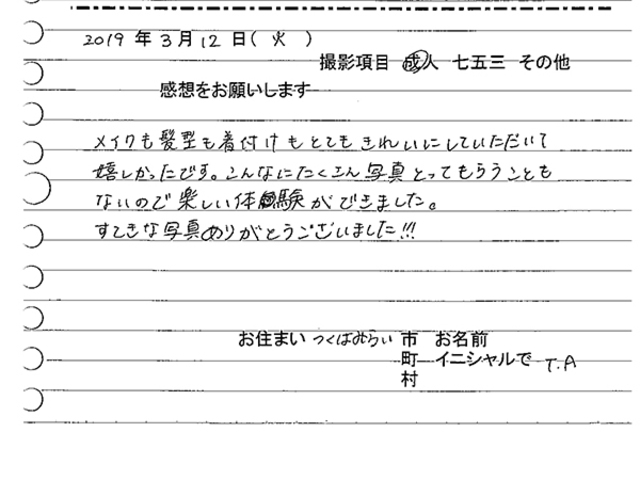 2019 年 3 月 12 日( 火 )
撮影項目 成人 七五三 その他
感想をお願いします
メイクも髪型も着付けもとてもきれいにしていただいて
嬉しかったです。こんなにたくさん写真とってもらうことも
ないので楽しい体験ができました。
すてきな写真ありがとうございました!!!
お住まい つくばみらい 市 お名前
町 イニシャルで T.A
村